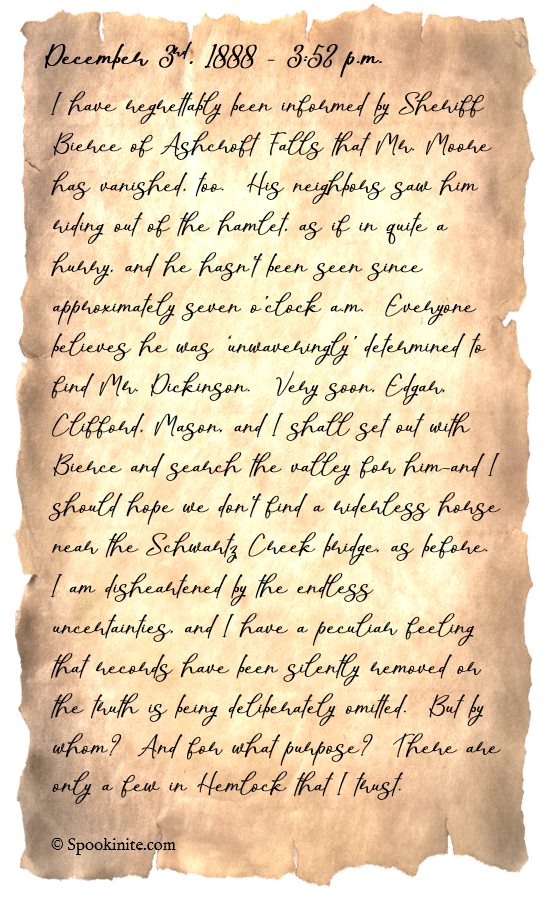 December 3rd, 1888 - 3:52 p.m.
I have regrettably been informed by Sheriff
Bierce of Ashcroft Falls that Mr. Moore
has vanished, too. His neighbors saw him
riding out of the hamlet, as if in quite a
hurry, and he hasn't been seen since
approximately seven o'clock a.m. Everyone
believes he was 'unwaveringly' determined to
find Mr. Dickinson. Very soon, Edgar,
Clifford, Mason, and I shall set out with
Bierce and search the valley for him-and I
should hope we don't find a riderless horse
near the Schwartz Creek bridge, as before.
I am disheartened by the endless
uncertainties, and I have a peculiar feeling
that records have been silently removed or
the truth is being deliberately omitted. But by
whom? And for what purpose? There are
only a few in Hemlock that I trust.
© Spookinite.com